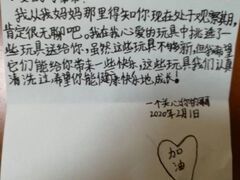 我从我妈妈那里得知你现在处于观察期,
肯定很无聊吧。我在我心爱的玩具中挑选了
一些玩具送给你,虽然这些玩具不够新,但
它们能给你带来一些快乐,这些玩具我们认真
清洗过,希望你能健康快乐地成长!
一个关心你的
2020年2月1日
加
油